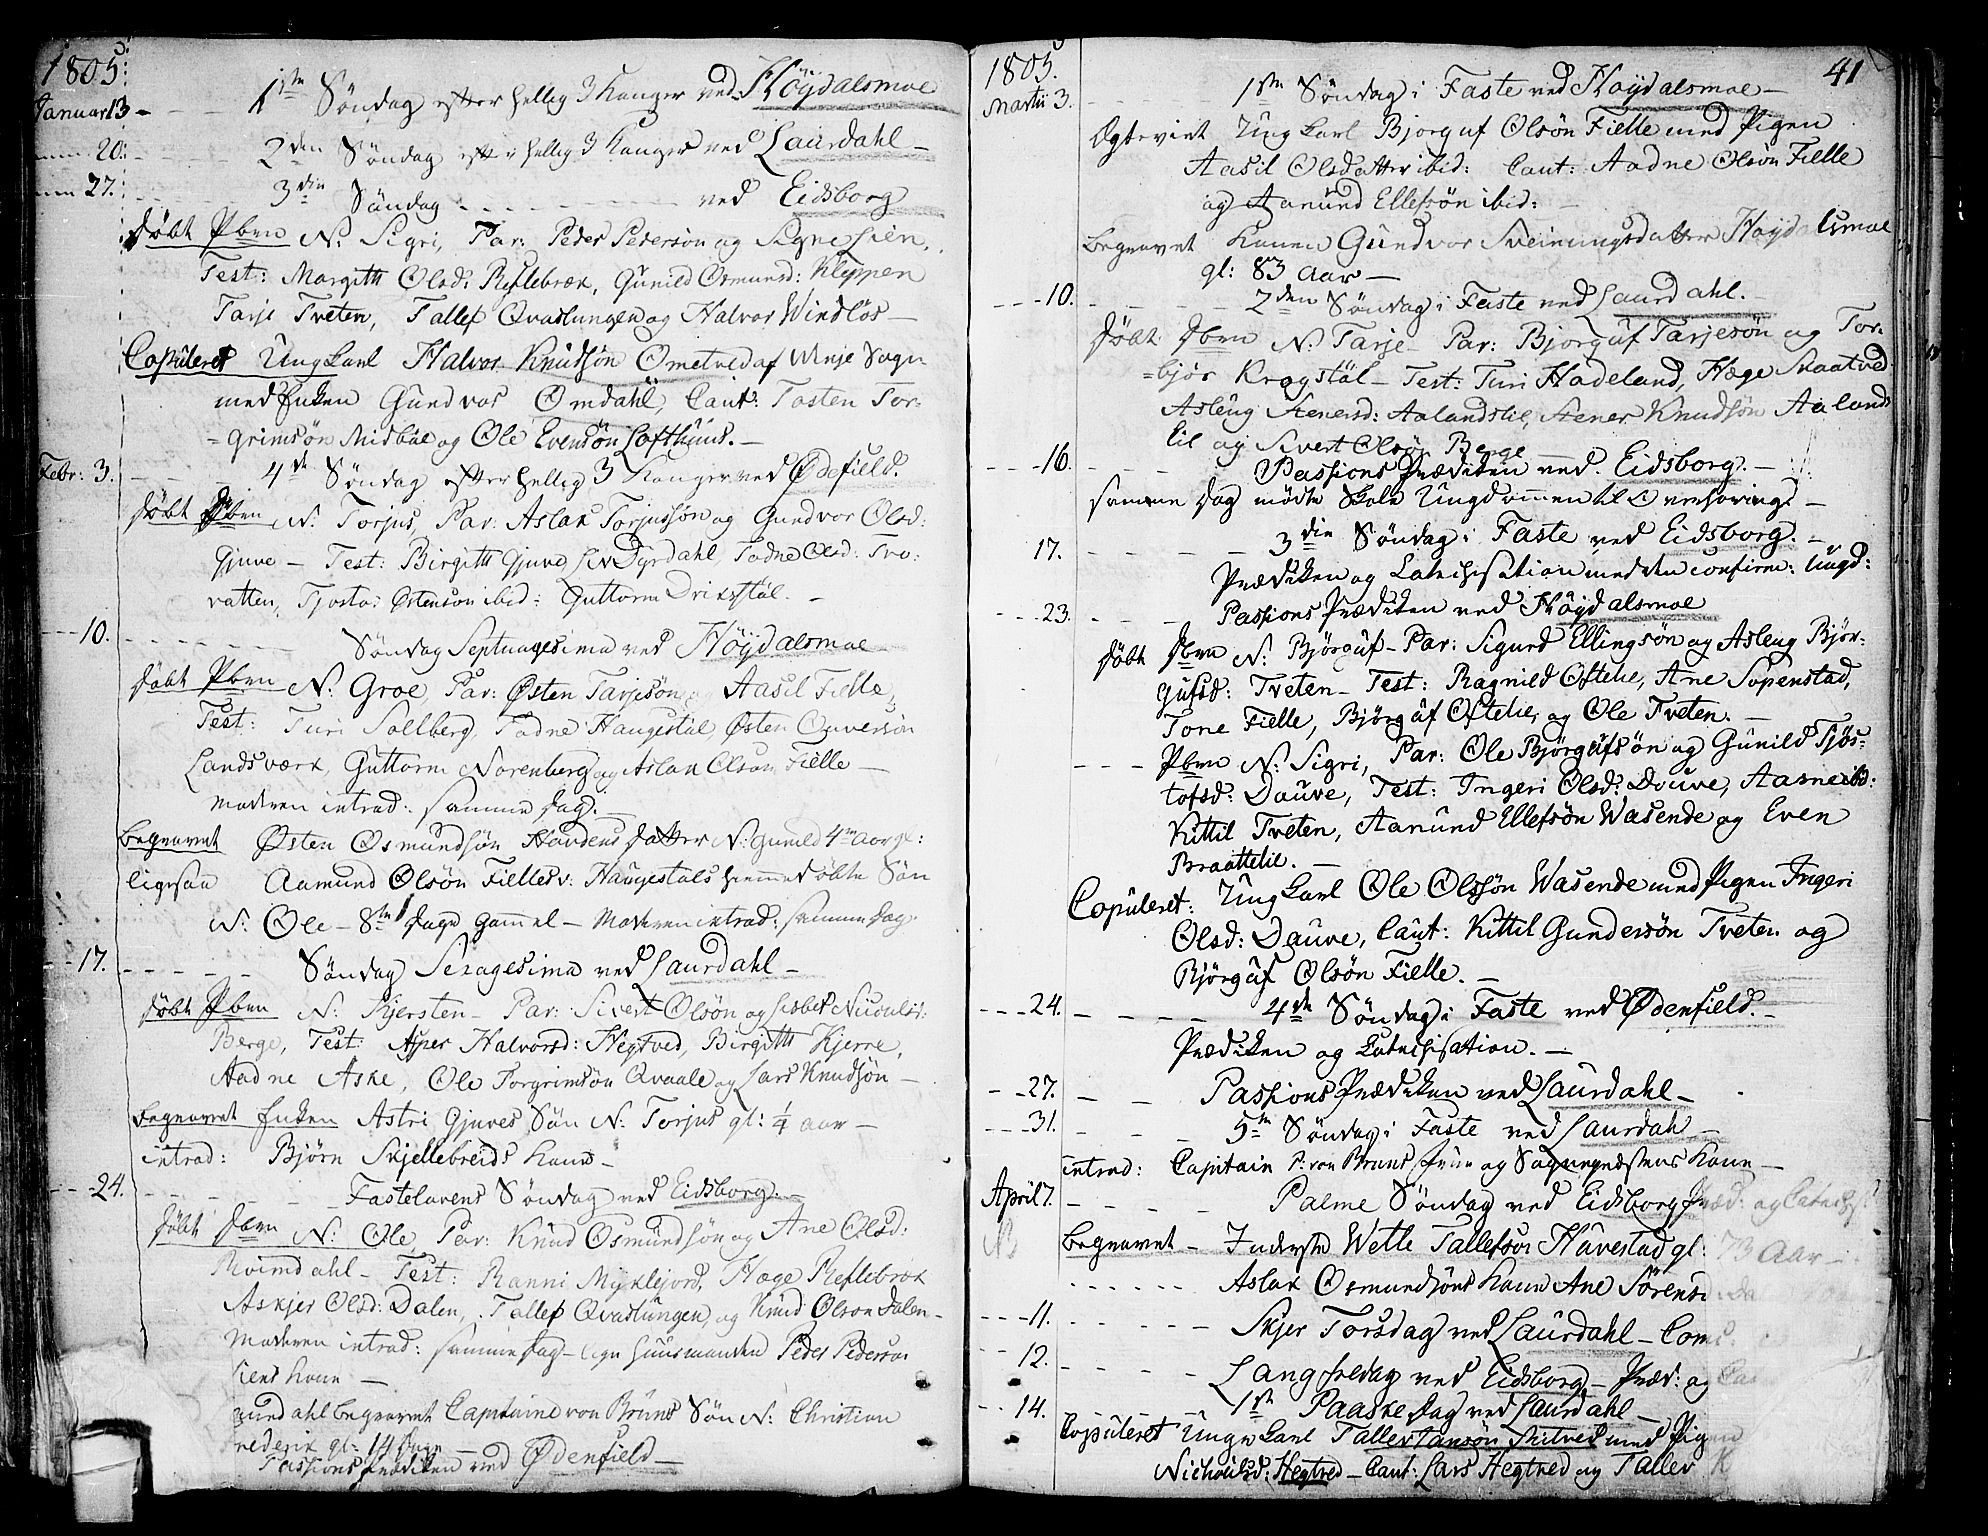 1805.
Januar 13 - 1ste Söndag efter hellig 3 Konger ved Höydalsmoe
20. 2den Söndag eft: hellig 3 Konger ved Laurdahl -
27. 3die Söndag ved Eidsborg
döbt Pbm N: Sigri, Par: Peder Pedersön og Signe Lien,
Test: Margith Olsd: Reflebrox, Gunild Osmunds: Kleppen
Tarje Tveten, Tallef Qvastungen og Halvor Windlös -
Copuleret Ung Karl Halvor Knudsön Ometved af Winje Sogn
med Enken Gundvor Omdahl, Caut: Tosten Tor-
=grimsön Midböe og Ole Evensön Lofthuus. -
Febr: 3. 4de Söndag efter hellig 3 Konger ved Ödefield.
döbt Dbm N: Torjus, Par: Aslak Torjussön og Gundvor Olsd:
Gjuve - Test: Birgith Gjuve, Liv Dyrdahl, Tadne Olsd: Tvo-
vatten, Tjostol Östenson ibid: Guttorm Drikstöl. -
10. Söndag Septuagesima ved Höydalsmoe
döbt Pbm N: Groe, Par: Östen Tarjesön og Aasil Fielle,
Test: Turi Sollberg, Tadne Haugestöl, Östen Onversön
Landsværk, Guttorm Norenberg og Aslak Olson Fielle -
Moderen introd: samme dag. -
Begravet Östen Osmundsön Haudens datter N: Gunild 4re Aar gl:
ligesaa Aamund Olsön Fielles v: Haugestöls hiemmedöbte Sön
N: Ole - 8te dage gammel - Moderen introd: samme dag.
17. Söndag Sexagesima ved Laurdahl -
döbt Pbm N: Kjersten - Par: Sivert Olsön og Lisbet Nicoulsd:
Berge, Test: Asper Halvorsd: Hegtved, Birgith Kjerre,
Aadne Aske, Ole Torgrimsön Qvaale og Lars Knudsön -
Begravet Enken Astri Gjuves Sön N: Torjus gl: 1/4 aar -
introd: Björn Skjellebreids Kone -
24. Fastelavens Söndag ved Eidsborg. -
döbt Dbm N: Ole, Par: Knud Osmundsön og Ane Olsd:
Roimdahl - Test: Ranni Myklejord, Hæge Reflebrox
Askjer Olsd: Dalen, Tallef Qvastungen, og Knud Olson Dalen -
Moderen introd: samme dag - lign Huusmanden Peder Pederson
Liens Kone -
begravet Capitaine von Bruns Sön N: Christian
Frederik gl: 14 dage -
Passions Prædiken ved Ödenfield -
1805. 41
Martii 3. 1ste Söndag i Faste ved Höydalsmoe -
Ægteviet Ung Karl Bjorguf Olsön Fielle med Pigen
Aasil Olsdatter ibid: Caut: Aadne Olsön Fielle
og Aanund Ellefsön ibid: -
Begravet Konen Gundvor Sveinungsdatter Höydalsmoe
gl: 83 aar -
10. 2den Söndag i Faste ved Laurdahl.
döbt Dbm N: Tarje - Par: Bjorguf Tarjesön og Tor-
=björ Krogstöl - Test: Turi Hadeland, Hæge Skaatved
Asleug Stenersd: Aalandslie, Stener Knudsön Aalands
lie og Sivert Olsön Berge -
16. Passions Prædiken ved Eidsborg. -
samme dag mödte Skole Ungdommen til Overhöring -
17. 3die Söndag i Faste ved Eidsborg. -
Prædiken og Catechisation med den confirm: Ungd:
23. Passions Prædiken ved Höydalsmoe
döbt Dbm N: Björguf - Par: Sigurd Ellingsön og Asleug Björ-
gufsd: Tveten - Test: Ragnild Oftelie, Ane Sopenstad,
Tone Fielle, Björguf Oftelie, og Ole Tveten. -
Pbm N: Sigri, Par: Ole Björgufsön og Gunild Tjös-
tofsd: Dauve, Test: Ingeri Olsd: Douve, Aasne ibd:
Kittil Tveten, Aanund Ellefsön Wasende og Even
Braattelie. -
Copuleret: Ung Karl Ole Olssön Wasende med Pigen Ingeri
Olsd: Dauve, Caut: Kittil Gundersön Tveten og
Björguf Olsön Fielle. -
24. 4de Söndag i Faste ved Ödenfield. -
Prædiken og Catechisation. -
27. Passions Prædiken ved Laurdahl -
31. 5te Söndag i Faste ved Laurdahl -
introd: Capitain P: von Bruns Frue og Sognepræstens Kone -
April 7. Palme Söndag ved Eidsborg Præd: og Catechis:
Begravet - Inderste Wetle Tallefson Huvestad gl: 73 Aar -
Aslak Osmundsöns Kone Ane Sörensd
11. Skjer Torsdag ved Laurdahl - Com:
12. Langfredag ved Eidsborg - Præd: og
14. 1ste Paaske dag ved Laurdahl -
Copuleret Unge Karl Tallev Jansön Skitved med Pigen
Nicoulsd: Hegtved - Caut: Lars Hegtved og Tallev K